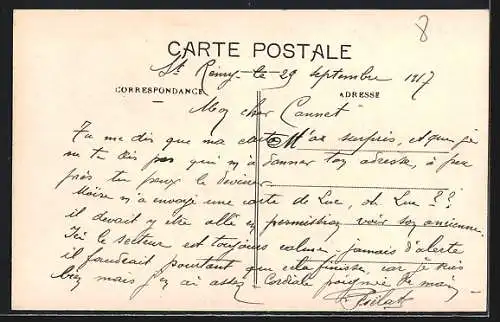 8
CARTE POSTALE
St Remy le 29 septembre 1917
CORRESPONDANCE ADRESSE
Mon cher Cannet
Tu me dis que ma carte t'as surpris, et que je
ne te dis pas qui m'a donner ton adresse, à peu
près tu peux le deviner.
m'a envoyé une carte de Luc, oh Luc ??
il devait y être allé en permission voir son ancienne.
Ici le secteur est toujours calme. jamais d'alerte
il faudrait pourtant que cela finisse, car je suis
bien mais j'en ai assez. Cordiale poignée de main